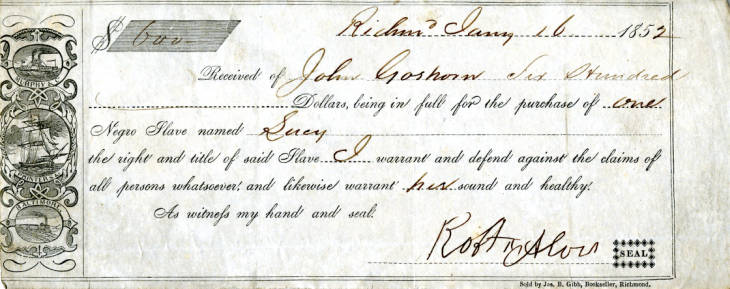 $ 600- Richmd Jany 16 1852
Received of John Goshorn Six Hundred
Dollars, being in full for the purchase of one
Negro Slave named Lucy
the right and title of said Slave I warrant and defend against the claims of
all persons whatsoever: and likewise warrant her sound and healthy.
As witness my hand and seal.
SEAL
MURPHY &
PRINTERS
BALTIMORE
Sold by Jos. B. Gibb, Bookseller, Richmond.